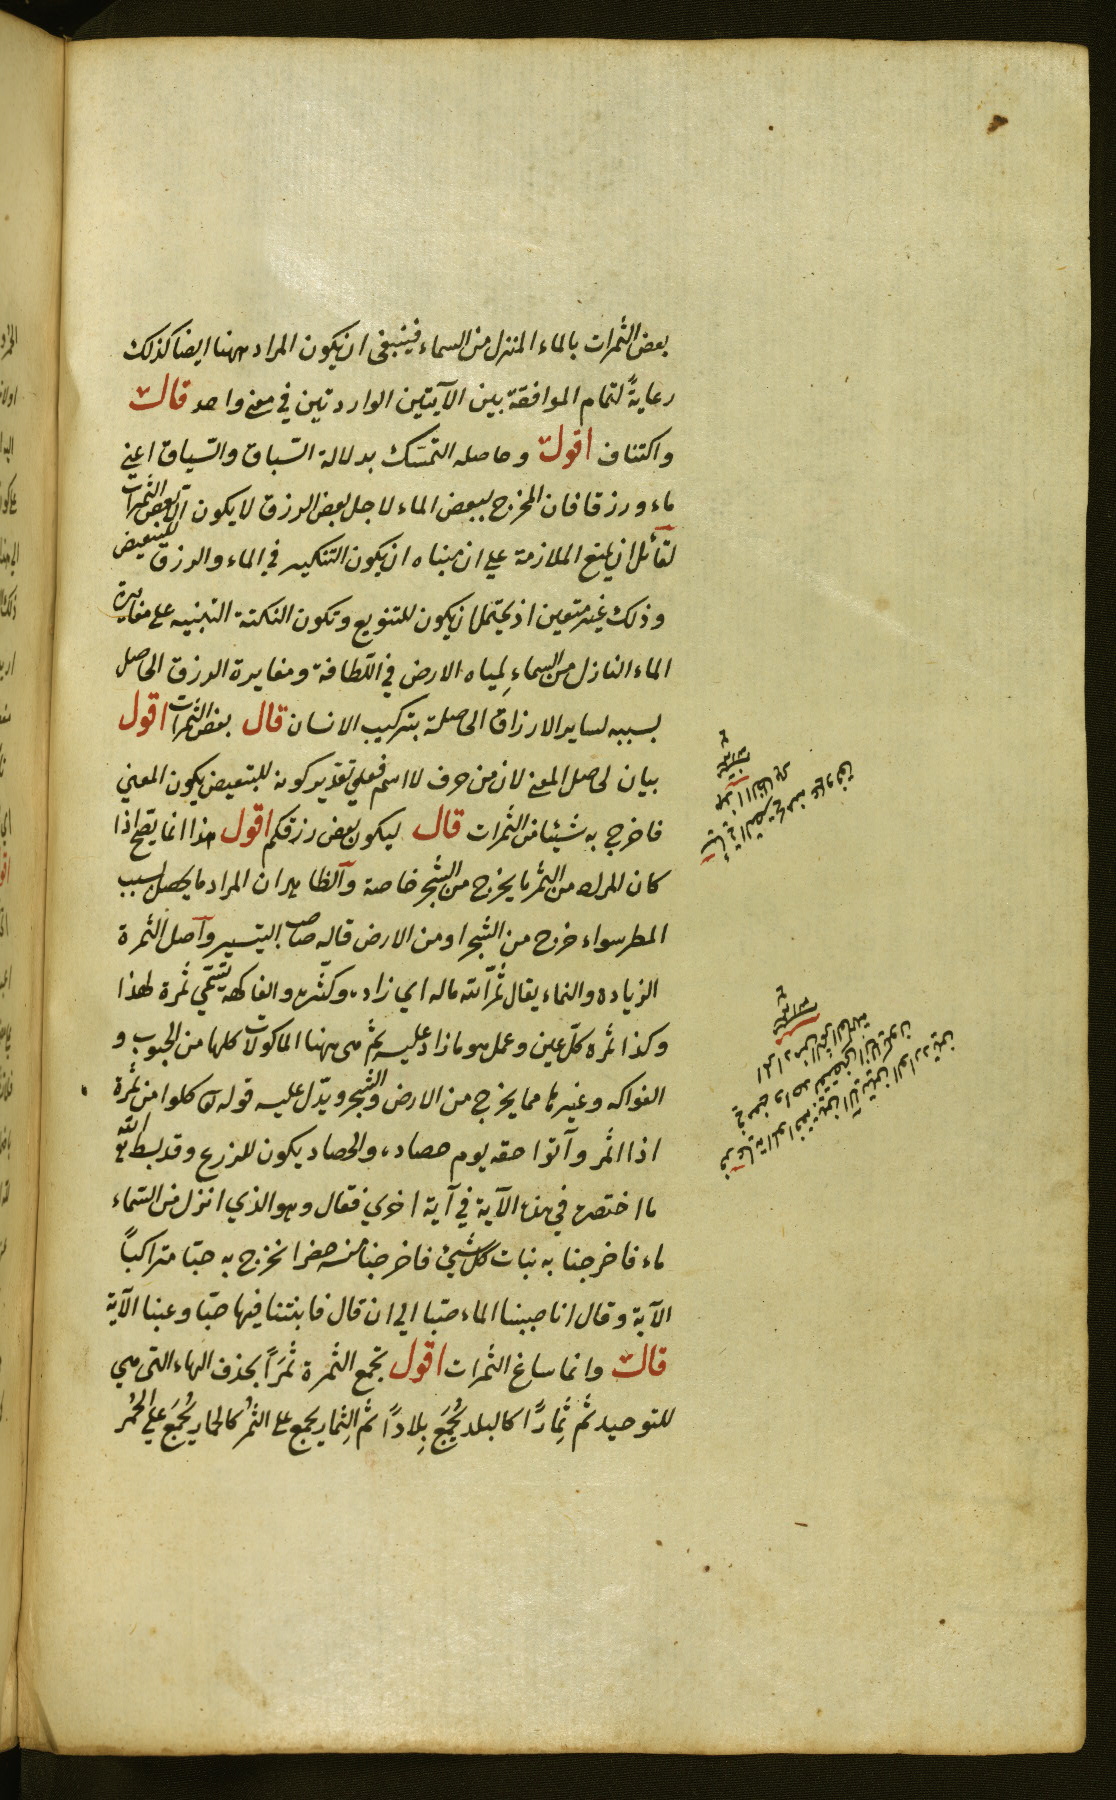 بعض الثمرات بالماء المنزل من السماء فينبغى ان يكون المراد ههنا ايضا كذلك
رعايةً لتمام الموافقة بين الآيتين الواردتين في معنى واحد قال
واكتناف اقول وحاصله التمسّك بدلالة السّباق والسّياق اعني
ماء ورزقا فان المخرج ببعض الماء لاجل بعض الرزق لا يكون الا بعض الثمرات
لقائل ان يمنع الملازمة على ان مبناه ان يكون التنكير في الماء والرزق للتبعيض
وذلك غير متعين اذ يحتمل ان يكون للتنويع وتكون النكتة التنبيه على مغايرة
الماء النازل من السماءِ لِمياه الارض في اللّطافة ومغايرة الرزق الحاصل
بسببه لساير الارزاق الحاصلة بتركيب الانسان قال بعض الثمرات اقول
بيان لحاصل المعنى لان من حرف لا اسم فعلى تقدير كونه للتبعيض يكون المعنى
فاخرج به شيئا من الثمرات قال ليكون بعض رزقكم اقول هذا انما يصح اذا
كان المراد من الثمر ما يخرج من الشجر خاصة والظاهر ان المراد ما يحصل بسبب
المطر سواء خرج من الشجر او من الارض قاله صاحب التيسير واصل الثمرة
الزيادة والنماء يقال ثمّر الله ماله اي زاده وكثّره والفاكهة تسمّى ثمرة لهذا
وكذا ثمرة كلّ عين وعمل هو ما زاد عليه ثم هى ههنا الماكولات كلها من الحبوب و
الفواكه وغيرها مما يخرج من الارض والشجر ويدلّ عليه قوله تع كلوا من ثمره
اذا اثمر وآتوا حقه يوم حصاده والحصاد يكون للزرع وقد بسط الله تع
ما اختصره في هذه الآية في آية اخرى فقال وهو الذي انزل من السّماء
ماء فاخرجنا به نبات كل شيئ فاخرجنا منه خضرا نخرج به حبّا متراكباً
الآية وقال انا صببنا الماء صبّا الى ان قال فانبتنا فيها حبّا وعنبا الآية
قال وانما ساغ الثمرات اقول تجمع الثمرة ثَمَراً بحذف الهاء التى هى
للتوحيد ثم ثِمارًا كالبلد يُجمَع بِلادًا ثم الثِمار يجمع على الثُمُر كالحمار يُجمَع على الحُمُر